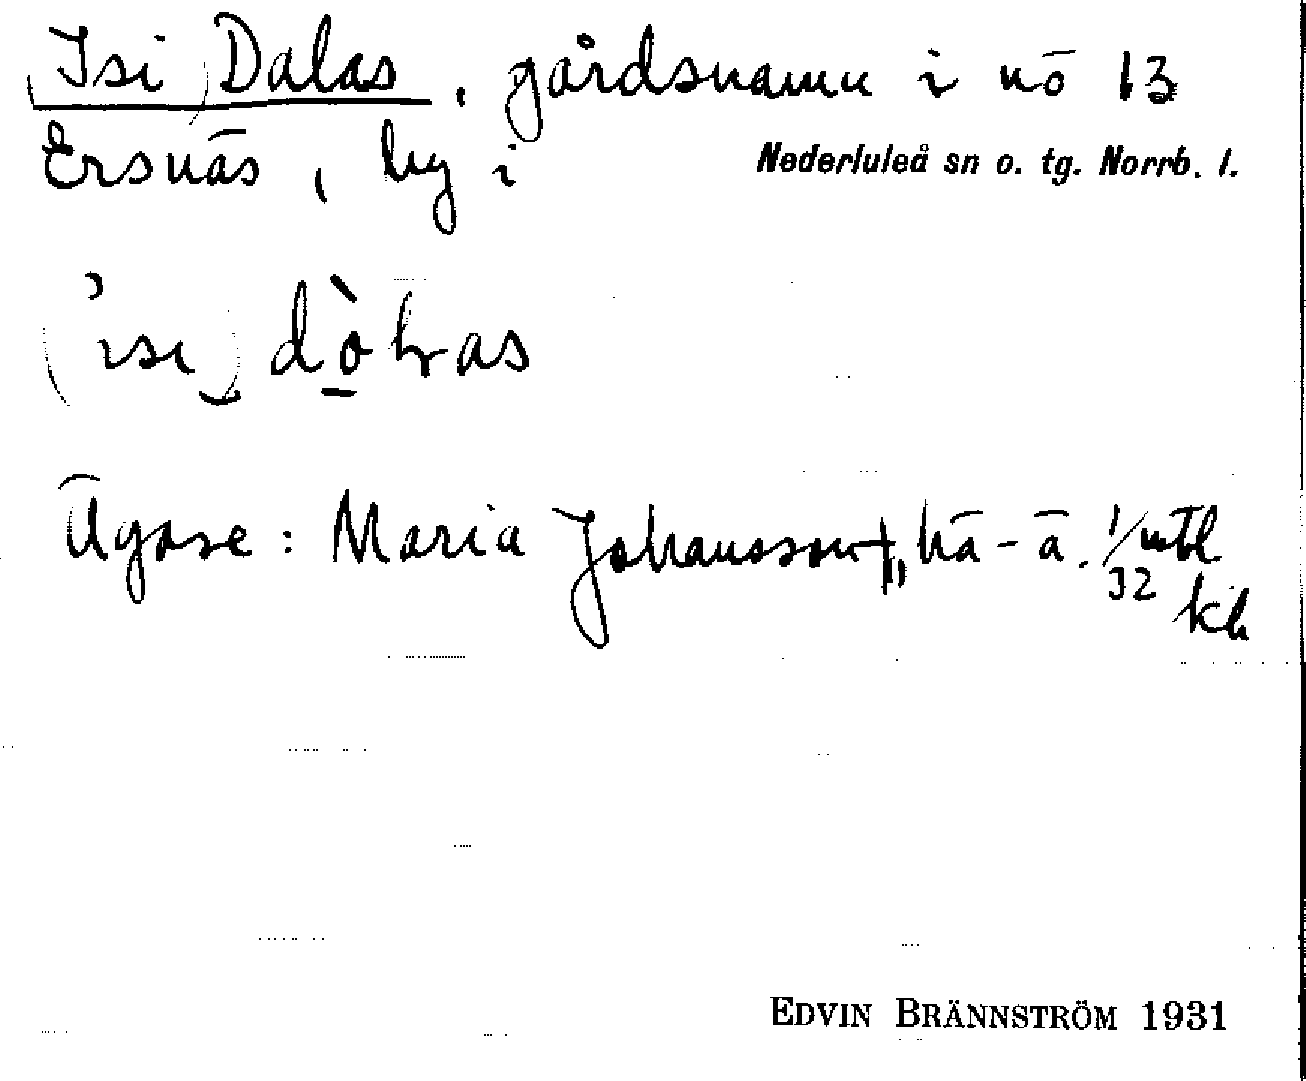 (Isi) Dalas, gårdsnamn i nö 13
Ersnäs, by i Nederluleå sn o. tg. Norrb. l.
Ägare: Maria Johansson, hä-ä. 1/32 mtl
EDVIN BRÄNNSTRÖM 1931